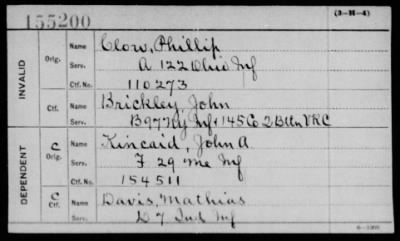 155200
(3-H-4)
INVALID
Orig.
Name
Clow, Phillip
Serv.
A 122 Ohio Inf
Ctf. No.
110273
Ctf.
Name
Brickley, John
Serv.
B 97 Ny Inf + 145 Co 2 Btln VRC
DEPENDENT
C Orig.
Name
Kincaid, John A
Serv.
F 29 Me Inf
Ctf. No.
154511
C Ctf.
Name
Davis, Mathias
Serv.
D 7 Ind Inf